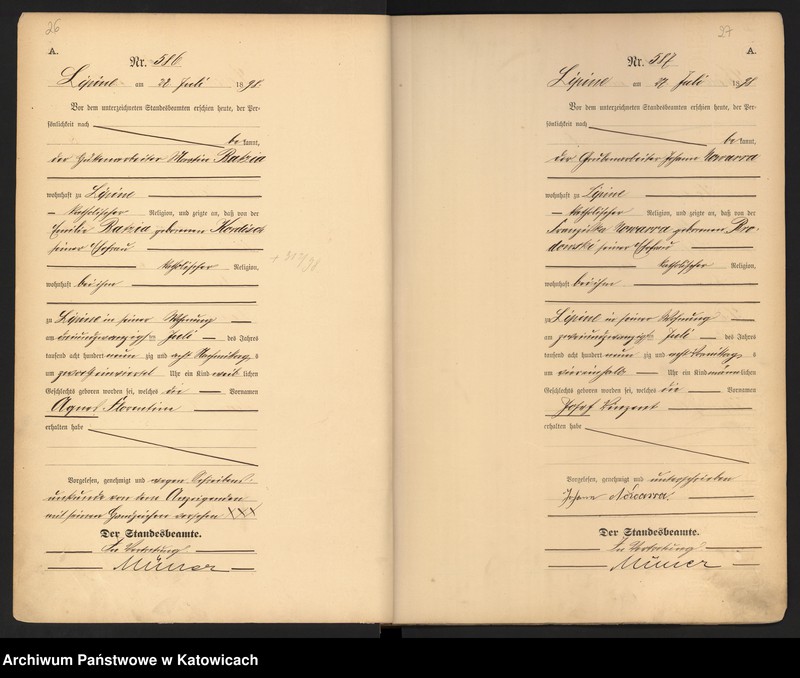 26
A.
Nr. 586
Lipine am 28 Juli 1898
Vor dem unterzeichneten Standesbeamten erschien heute, der Per-
sönlichkeit nach
be kannt,
der Hüttenarbeiter Ratzia
wohnhaft zu Lipine
katholischer Religion, und zeigte an, daß von der
Emilie Ratzia geborenen
seiner Ehefrau
katholischer Religion,
wohnhaft bei ihm
zu Lipine in seiner Wohnung
am Juli des Jahres
tausend acht hundert neun zig und acht Nachmittags
um zwölf einviertel Uhr ein Kind weib lichen
Geschlechts geboren worden sei, welches die Vornamen
Agnes Florentine
erhalten habe
Vorgelesen, genehmigt und wegen Schreibens
unkunde von dem Anzeigenden
mit seinem Handzeichen versehen XXX
Der Standesbeamte.
In Vertretung
+ 317/98
27
A.
Nr. 587
Lipine am 28 Juli 1898
Vor dem unterzeichneten Standesbeamten erschien heute, der Per-
sönlichkeit nach
be kannt,
der Grubenarbeiter Johann Nowarra
wohnhaft zu Lipine
katholischer Religion, und zeigte an, daß von der
Franziska Nowarra geborenen Bro-
dowski seiner Ehefrau
katholischer Religion,
wohnhaft bei ihm
zu Lipine in seiner Wohnung
am Juli des Jahres
tausend acht hundert neun zig und acht Vormittags
um viereinhalb Uhr ein Kind männ lichen
Geschlechts geboren worden sei, welches die Vornamen
Josef Vinzent
erhalten habe
Vorgelesen, genehmigt und unterschrieben
Johann Nowarra.
Der Standesbeamte.
In Vertretung
Archiwum Państwowe w Katowicach